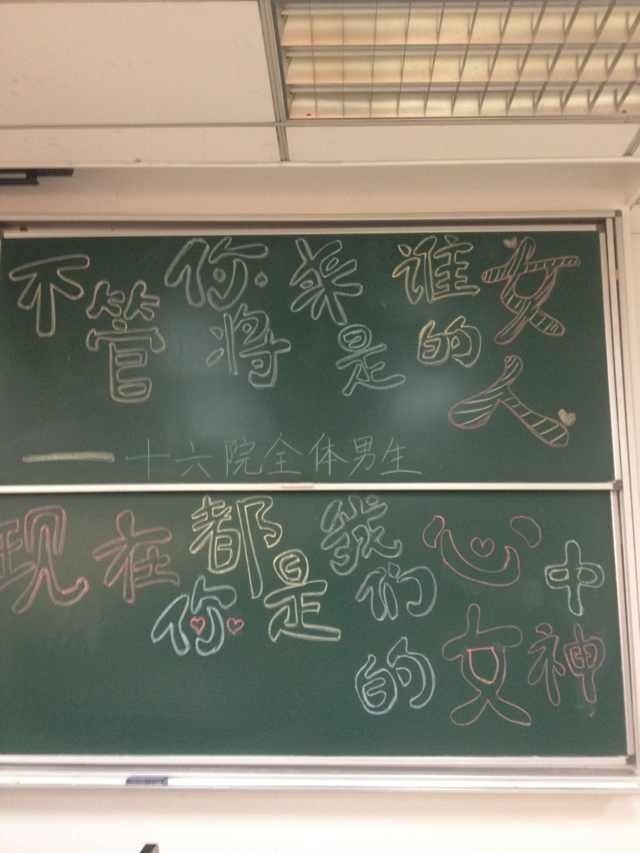 不管你将来是谁的女人
——十六院全体男生
现在你都是我们心中的女神